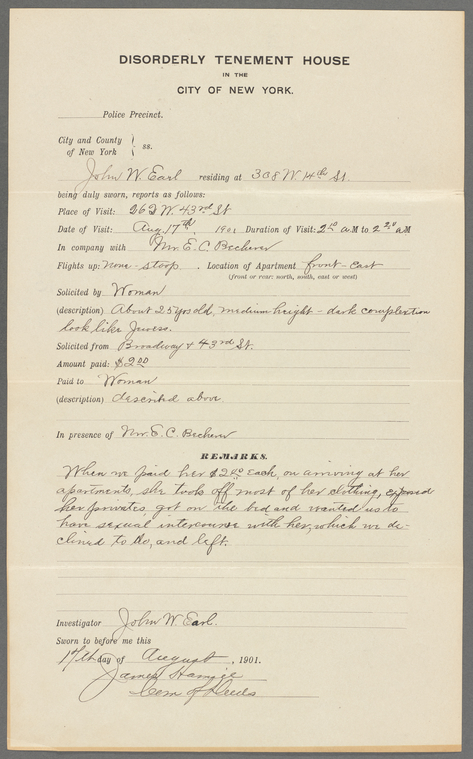 DISORDERLY TENEMENT HOUSE
IN THE
CITY OF NEW YORK.
Police Precinct.
City and County
of New York ss.
John W. Earl residing at 308 W. 14th St.
being duly sworn, reports as follows:
Place of Visit: 262 W. 43rd St
Date of Visit: Aug. 17th, 1901 Duration of Visit: 2 10 A M to 2 20 A M
In company with Mr. E. C. Becherer
Flights up: none - stoop. Location of Apartment front - east
(front or rear: north, south, east or west)
Solicited by Woman
(description) About 25 yrs old, medium height - dark complexion
look like Jewess.
Solicited from Broadway & 43rd St.
Amount paid: $2.00
Paid to Woman
(description) described above
In presence of Mr. E. C. Becherer
REMARKS.
When we paid her $2 each, on arriving at her
apartments, she took off most of her clothing, exposed
her privates, got on the bed and wanted us to
have sexual intercourse with her, which we de-
clined to do, and left.
Investigator John W. Earl.
Sworn to before me this
17th day of August, 1901.
James
Com of Deeds